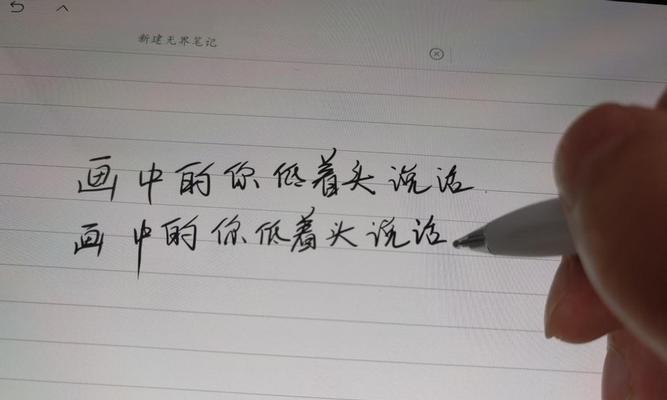 新建无界笔记
画中的你低着头说话
画中的你低着头说话